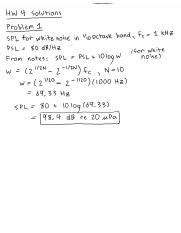 HW 4 Solutions
Problem 1
SPL for white noise in 1/10 octave band, fc = 1 kHz
PSL = 80 dB/Hz
From notes: SPL = PSL + 10 log W (for white noise)
W = (2^1/2N - 2^-1/2N) fc, N = 10
W = (2^1/20 - 2^-1/20)(1000 Hz)
= 69.33 Hz
SPL = 80 + 10 log (69.33)
= 98.4 dB re 20 μPa